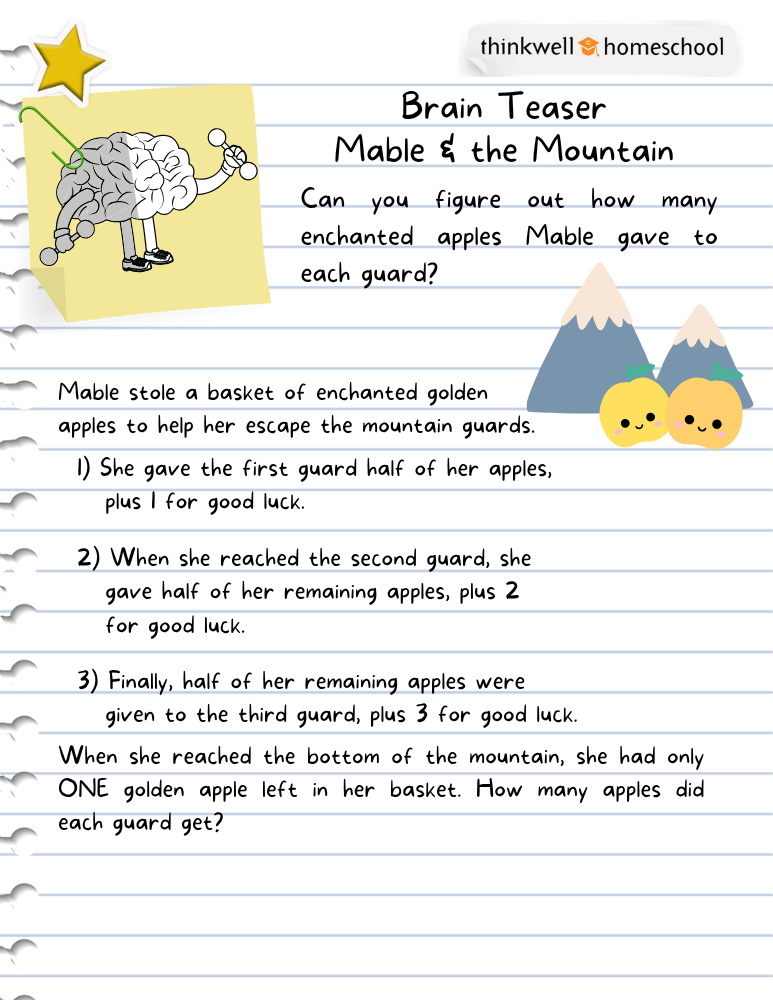 thinkwell homeschool
Brain Teaser
Mable & the Mountain
Can you figure out how many
enchanted apples Mable gave to
each guard?
Mable stole a basket of enchanted golden
apples to help her escape the mountain guards.
1) She gave the first guard half of her apples,
plus 1 for good luck.
2) When she reached the second guard, she
gave half of her remaining apples, plus 2
for good luck.
3) Finally, half of her remaining apples were
given to the third guard, plus 3 for good luck.
When she reached the bottom of the mountain, she had only
ONE golden apple left in her basket. How many apples did
each guard get?